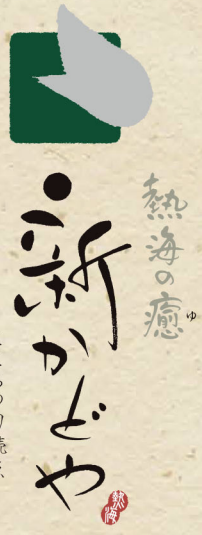 熱海の癒
ゆ
新かどや
熱海